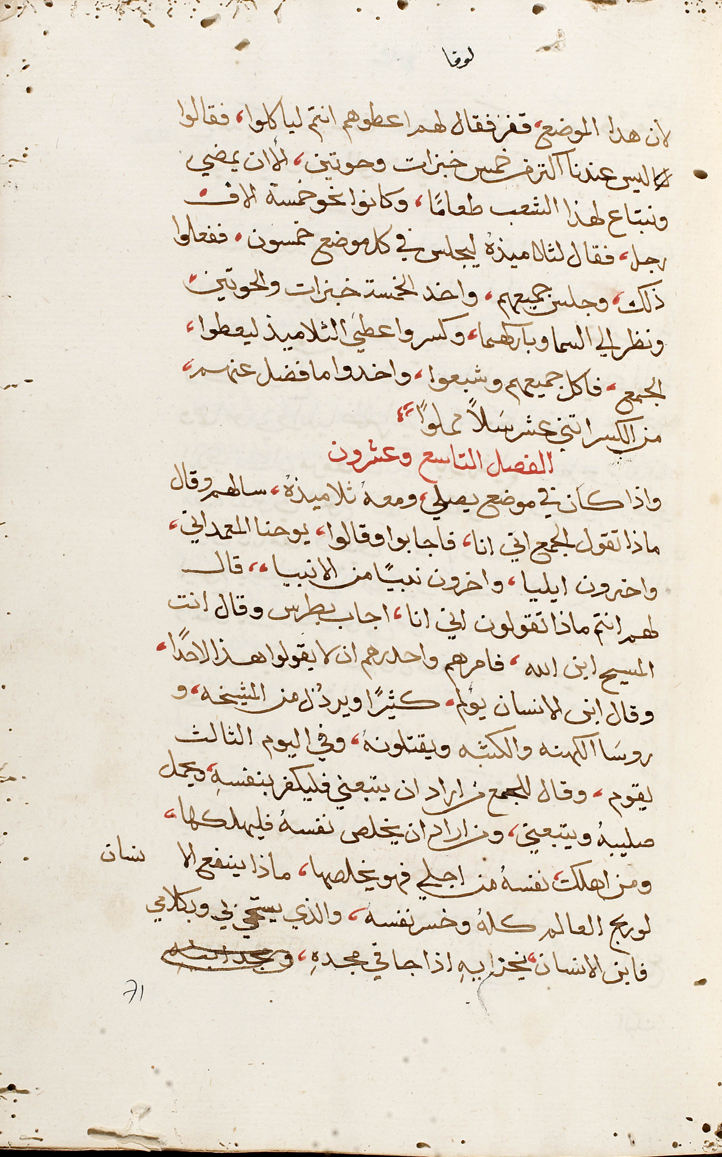 لوقا
لان هدا الموضع، قفر فقال لهم اعطوهم انتم لياكلوا، فقالوا
ليس عندنا اكتر من خمس خبزات وحوتين، الاان يمضي
ونبتاع لهذا الشعب طعامًا، وكانوا نحو خمسة الاف
رجل، فقال لتلاميذهُ ليجلس في كل موضع خمسون، ففعلوا
ذلك، وجلس جميعهم، واخد الخمسة خبزات والحوتين
ونظر الي السما وباركهما، وكسر واعطي التلاميذ ليعطوا،
الجمع، فاكل جميعهم وشبعوا، واخدوا ما فضل عنهم،
من الكسر اتني عشر سَلاً مملوًا
الفصل التاسع وعشرون
واذا كان في موضع يصلي، ومعهُ تلاميذهُ، سالهم وقال
ماذا تقول الجمع اني انا، فاجابوا وقالوا، يوحنا المعمداني،
واخرون ايليا، واخرون نبيًا من الانبيا،، قال
لهم انتم ماذا تقولون اني انا، اجاب بطرس وقال انت
المسيح ابن الله، فامرهم وحدرهم ان لا يقولوا هذا لاحدًا،
وقال ابن الانسان يولم، كثيرًا ويرذل من المشيخه، و
روسَا الكهنه والكتبه ويقتلونهُ، وفي اليوم الثالث
يقوم، وقال للجمع من اراد ان يتبعني فليكفر بنفسهِ، ويحمل
صليبهُ ويتبعني، ومن اراد ان يخلص نفسهُ فليهلكها،
ومن اهلكت نفسهُ من اجلي فهو يخلصها، ماذا ينفع الا نسان
لو ربح العالم كلهُ وخسر نفسه، والذي يستحي بي وبكلامي
فابن الانسان، يخزا بهِ اذا جا في مجدهِ، ومجد ابيه
71